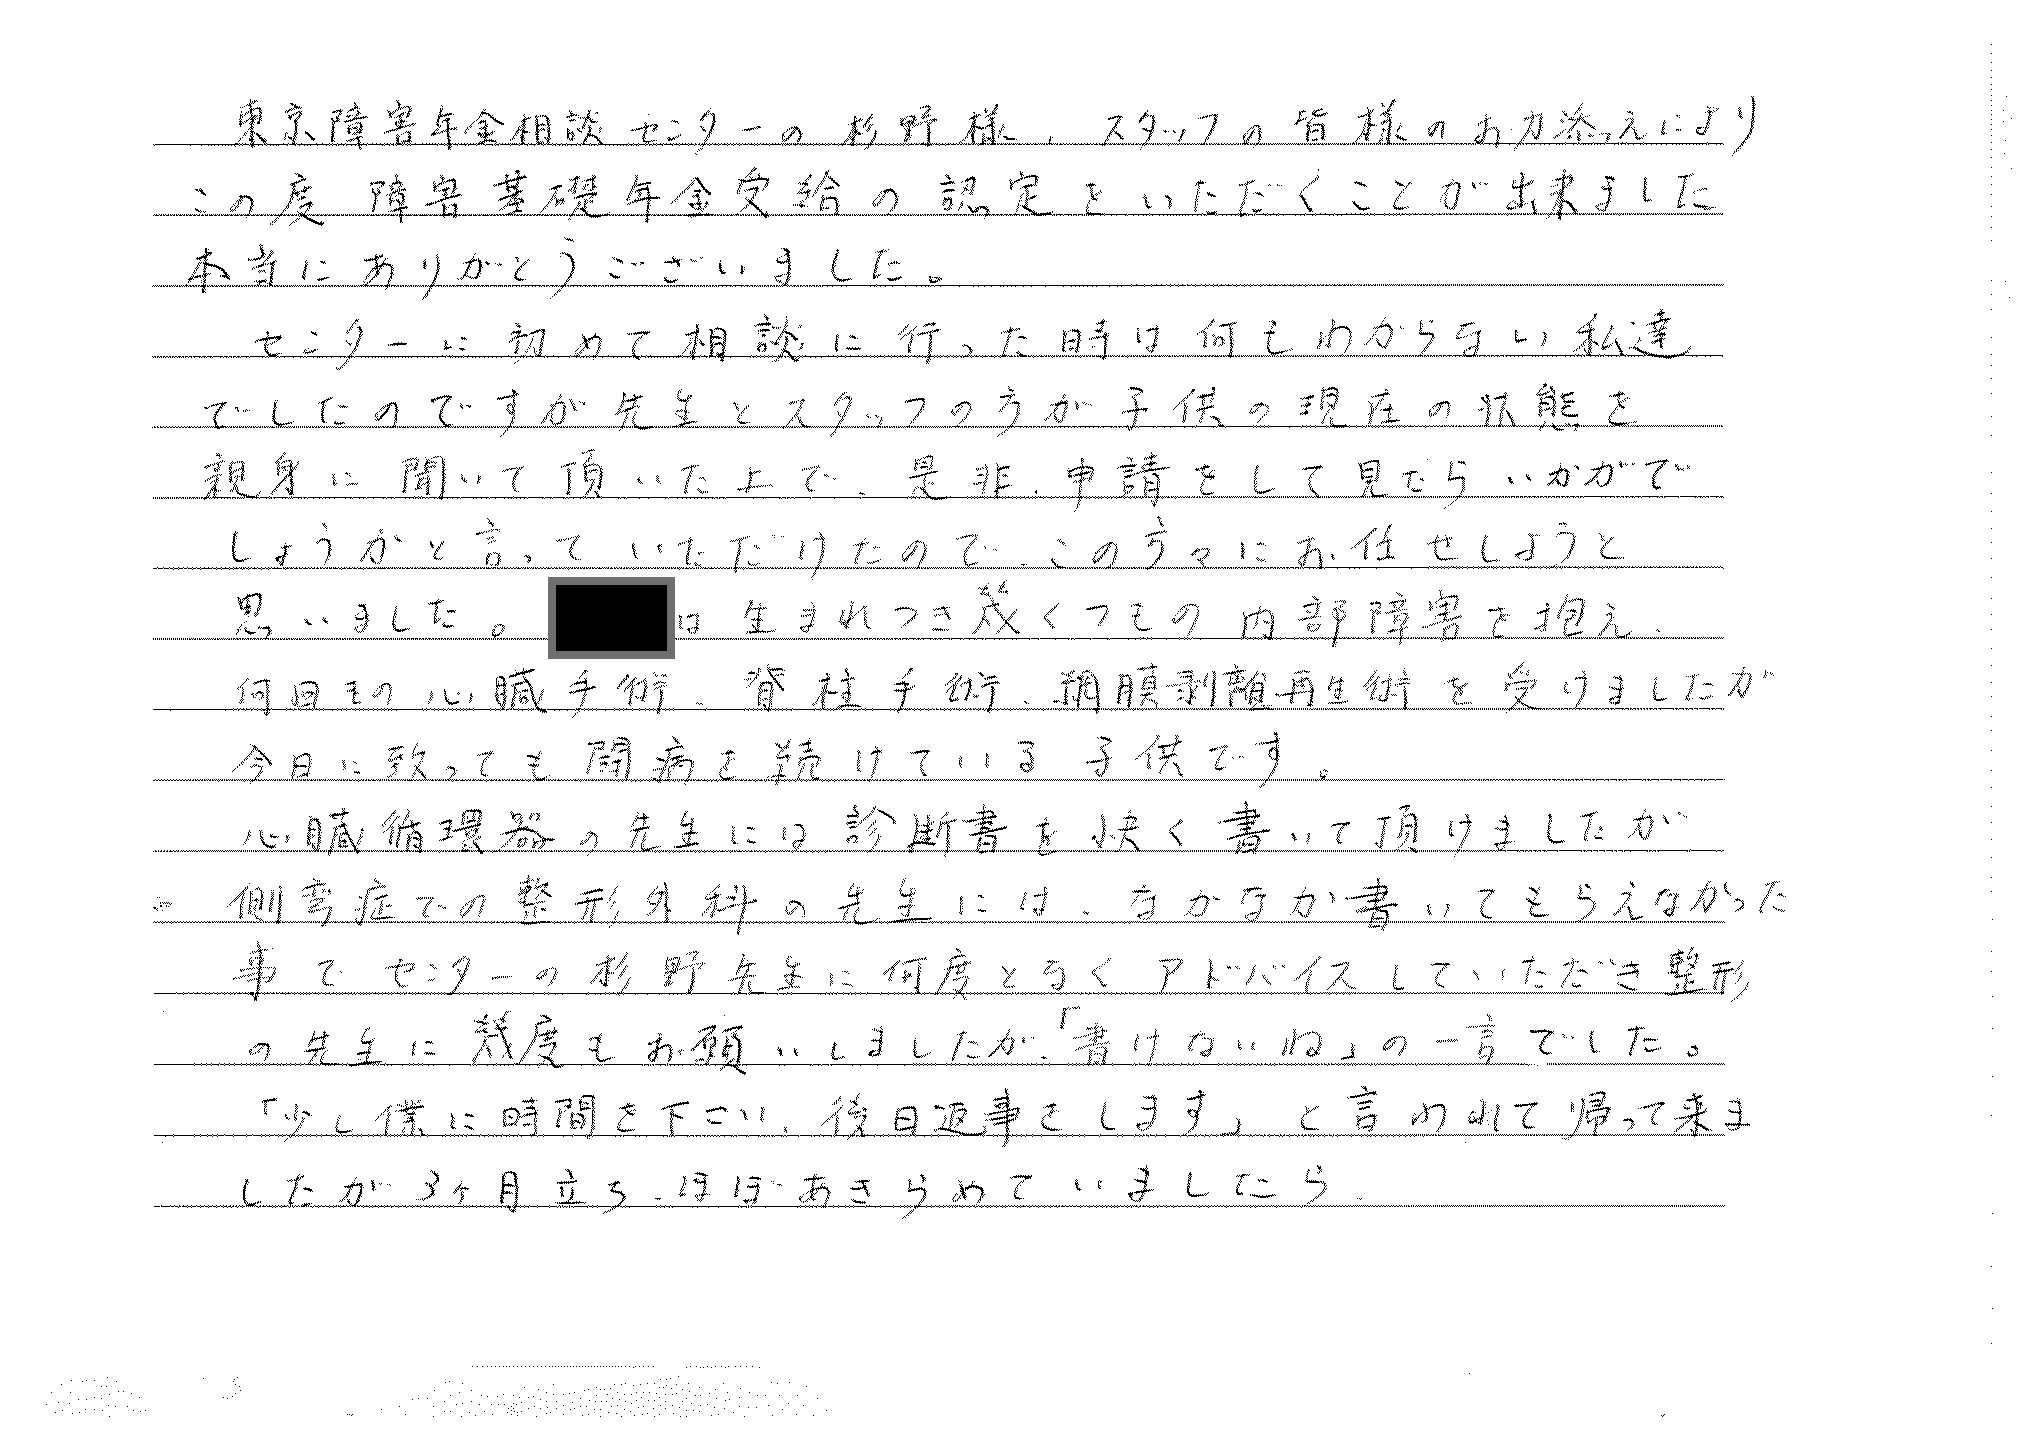 東京障害年金相談センターの杉野様、スタッフの皆様のお力添えにより
この度 障害基礎年金受給の認定をいただくことが出来ました
本当にありがとうございました。
センターに初めて相談に行った時は何もわからない私達
でしたのですが先生とスタッフの方が子供の現在の状態を
親身に聞いて頂いた上で、是非、申請をして見たらいかがで
しょうかと言っていただけたので、この方々にお任せしようと
思いました。は生まれつき幾くつもの内部障害を抱え、
何回もの心臓手術、脊柱手術、網膜剥離再生術を受けましたが
今日に致っても闘病を続けている子供です。
心臓循環器の先生には診断書を快く書いて頂けましたが
側弯症での整形外科の先生には、なかなか書いてもらえなかった
事でセンターの杉野先生に何度となくアドバイスしていただき整形
の先生に幾度もお願いしましたが、「書けないね」の一言でした。
「少し僕に時間を下さい、後日返事をします」と言われて帰って来ま
したが3ヶ月立ち、ほぼあきらめていましたら、